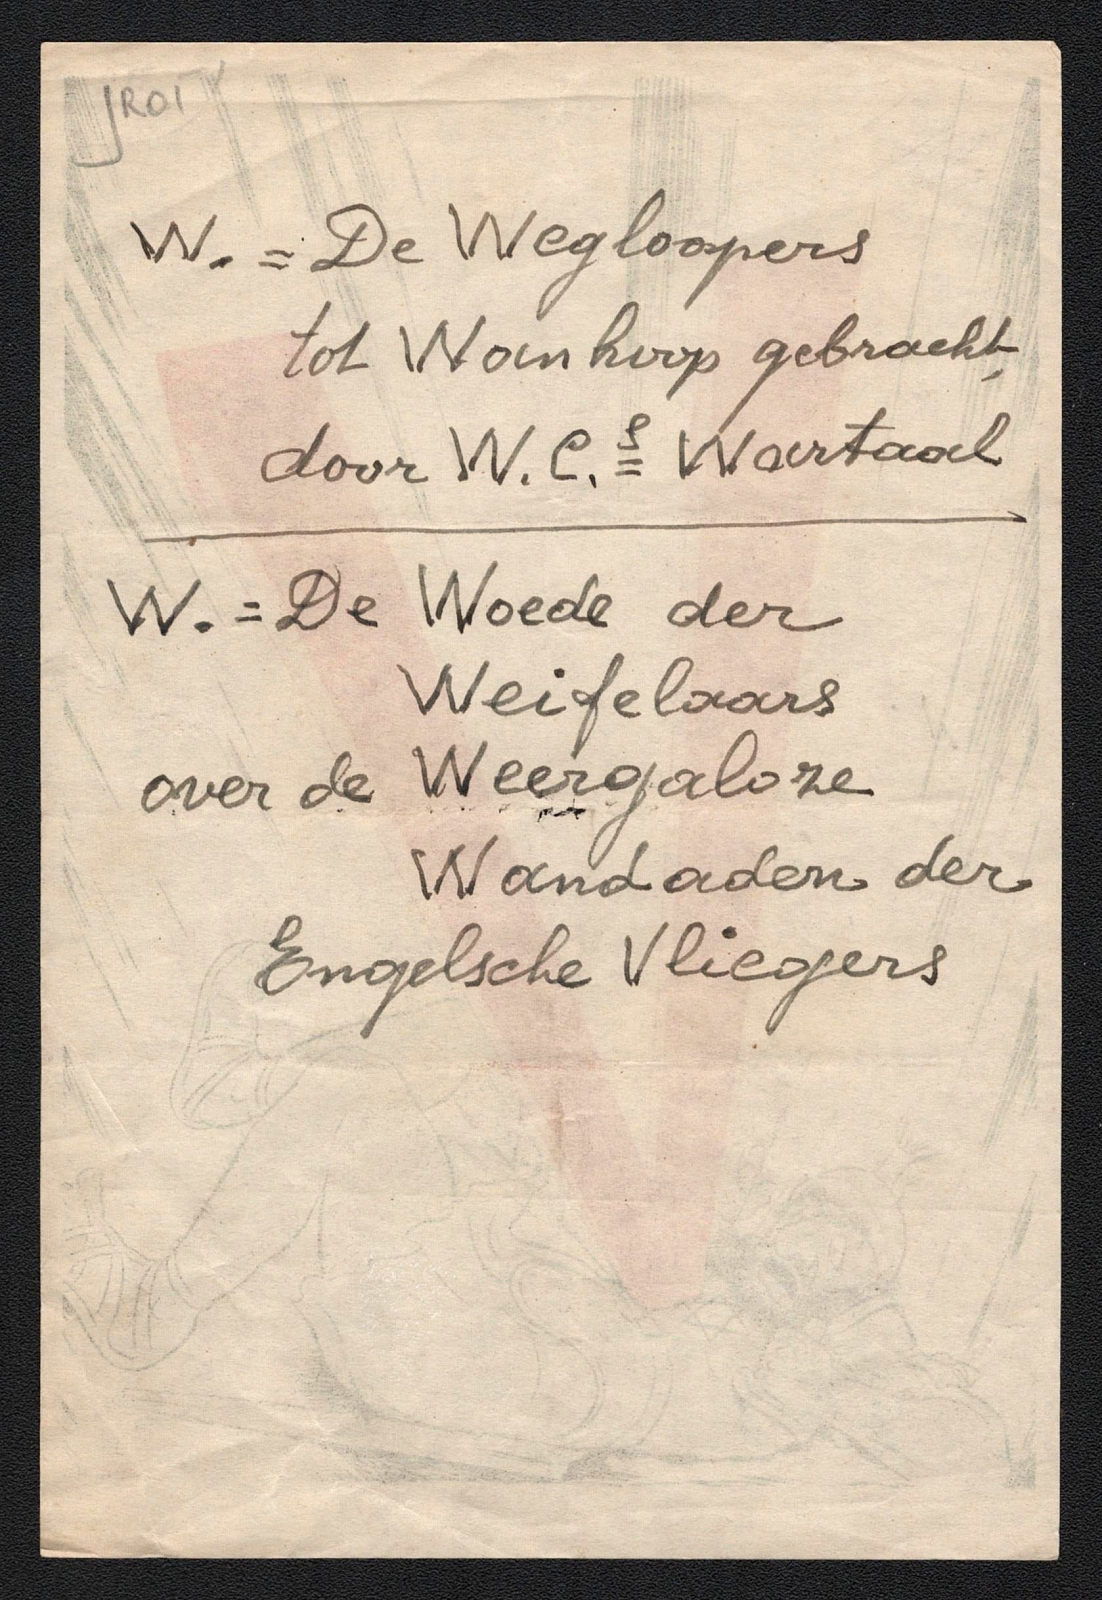 JROT
W. = De Wegloopers
tot Wanhoop gebracht,
door W.C.s Wartaal
W. = De Woede der
Weifelaars
over de Weergaloze
Wandaden der
Engelsche Vliegers